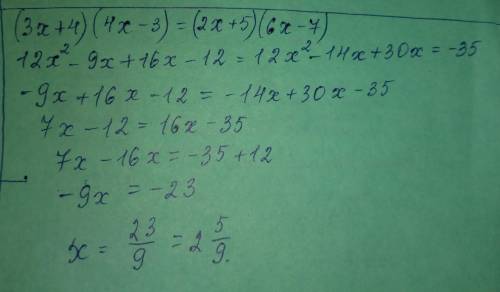 (3x+4)(4x-3)=(2x+5)(6x-7)
12x²-9x+16x-12=12x²-14x+30x=-35
-9x+16x-12=-14x+30x-35
7x-12=16x-35
7x-16x=-35+12
-9x=-23
x=23/9=2 5/9.